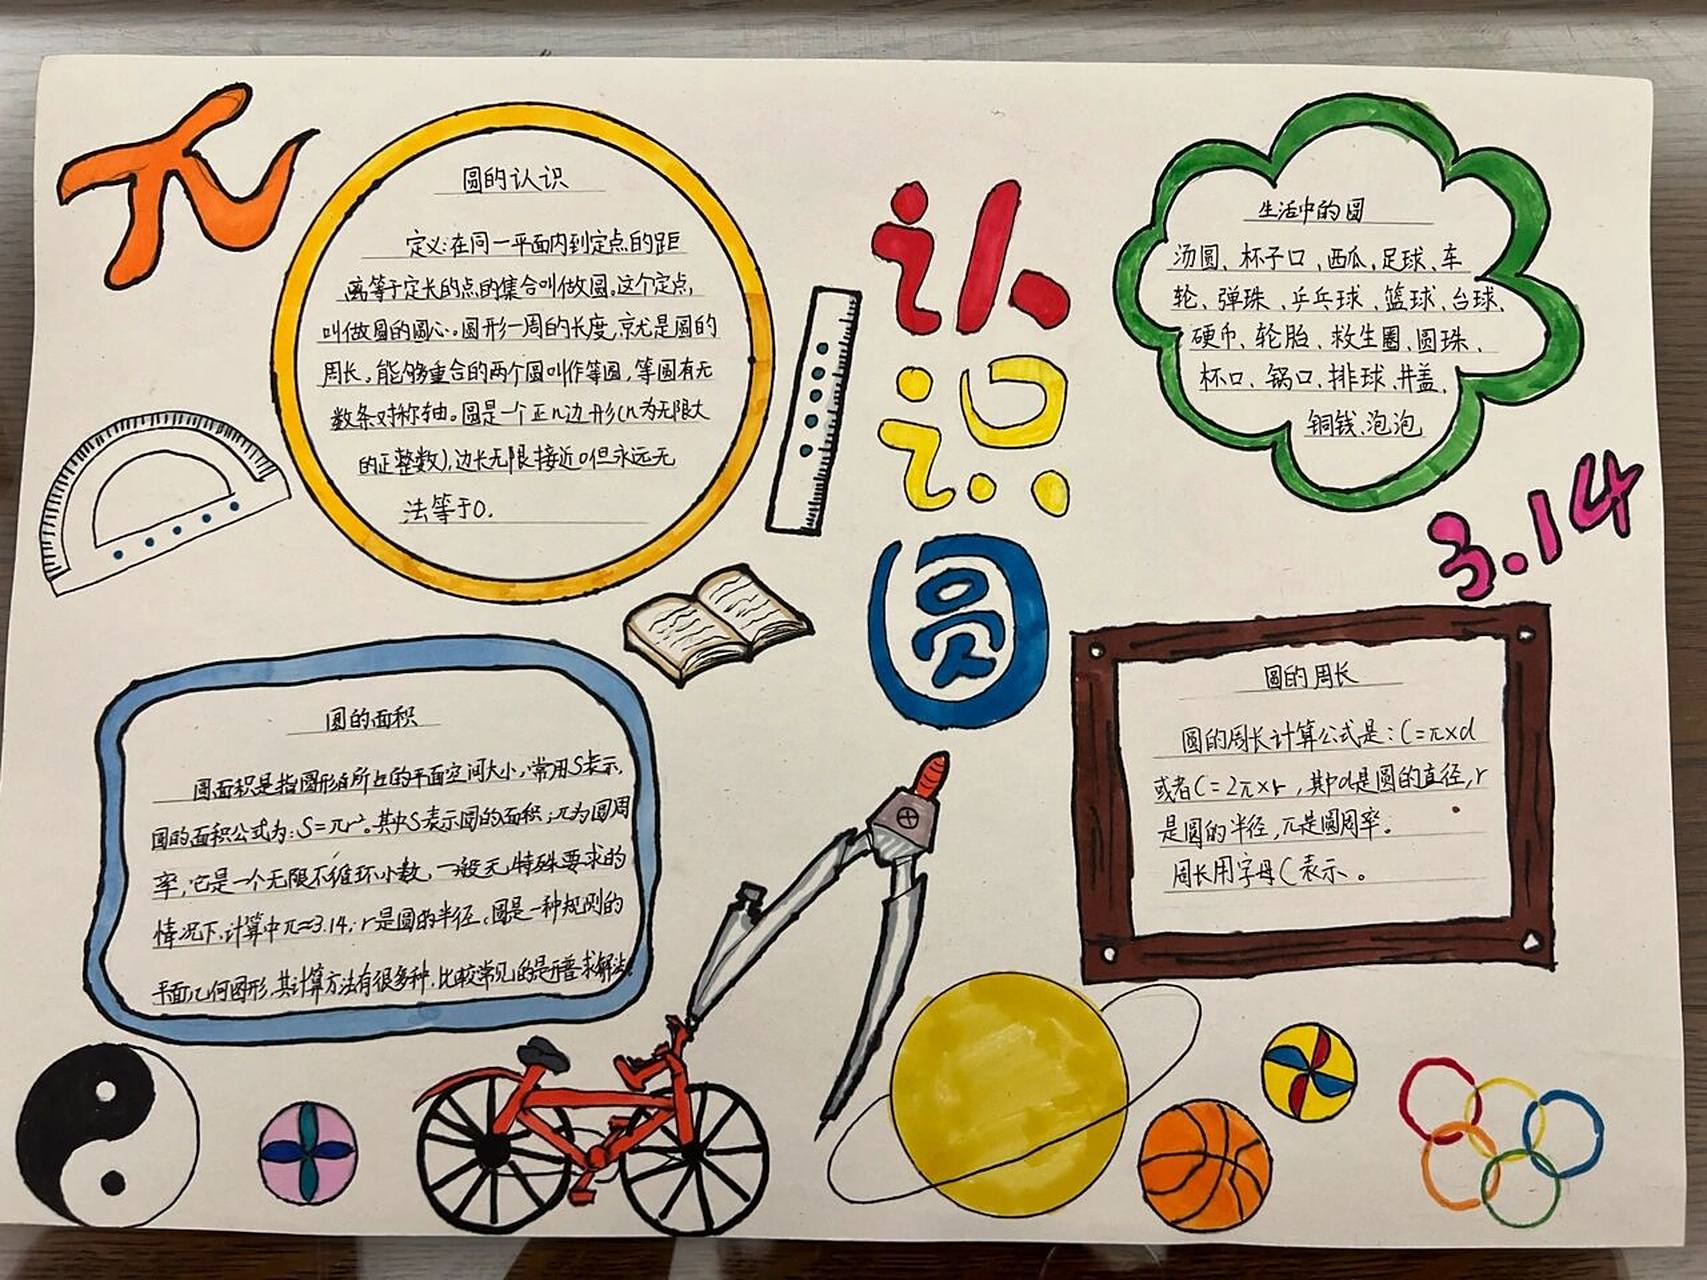 π
圆的认识
定义:在同一平面内到定点的距
离等于定长的点的集合叫做圆。这个定点,
叫做圆的圆心。圆形一周的长度,就是圆的
周长。能够重合的两个圆叫作等圆,等圆有无
数条对称轴。圆是一个正n边形(n为无限大
的正整数),边长无限接近0但永远无
法等于0.
认
识
圆
生活中的圆
汤圆、杯子口、西瓜、足球、车
轮、弹珠、乒乓球、篮球、台球、
硬币、轮胎、救生圈、圆珠、
杯口、锅口、排球、井盖、
铜钱、泡泡
3.14
圆的面积
圆面积是指圆形所占的平面空间大小,常用S表示,
圆的面积公式为:S=πr²。其中S表示圆的面积;π为圆周
率,它是一个无限不循环小数,一般无特殊要求的
情况下,计算中π≈3.14;r是圆的半径。圆是一种规则的
平面几何图形,其计算方法有很多种,比较常见的是
圆的周长
圆的周长计算公式是:C=π×d
或者C=2π×r,其中d是圆的直径,r
是圆的半径,π是圆周率。
周长用字母C表示。